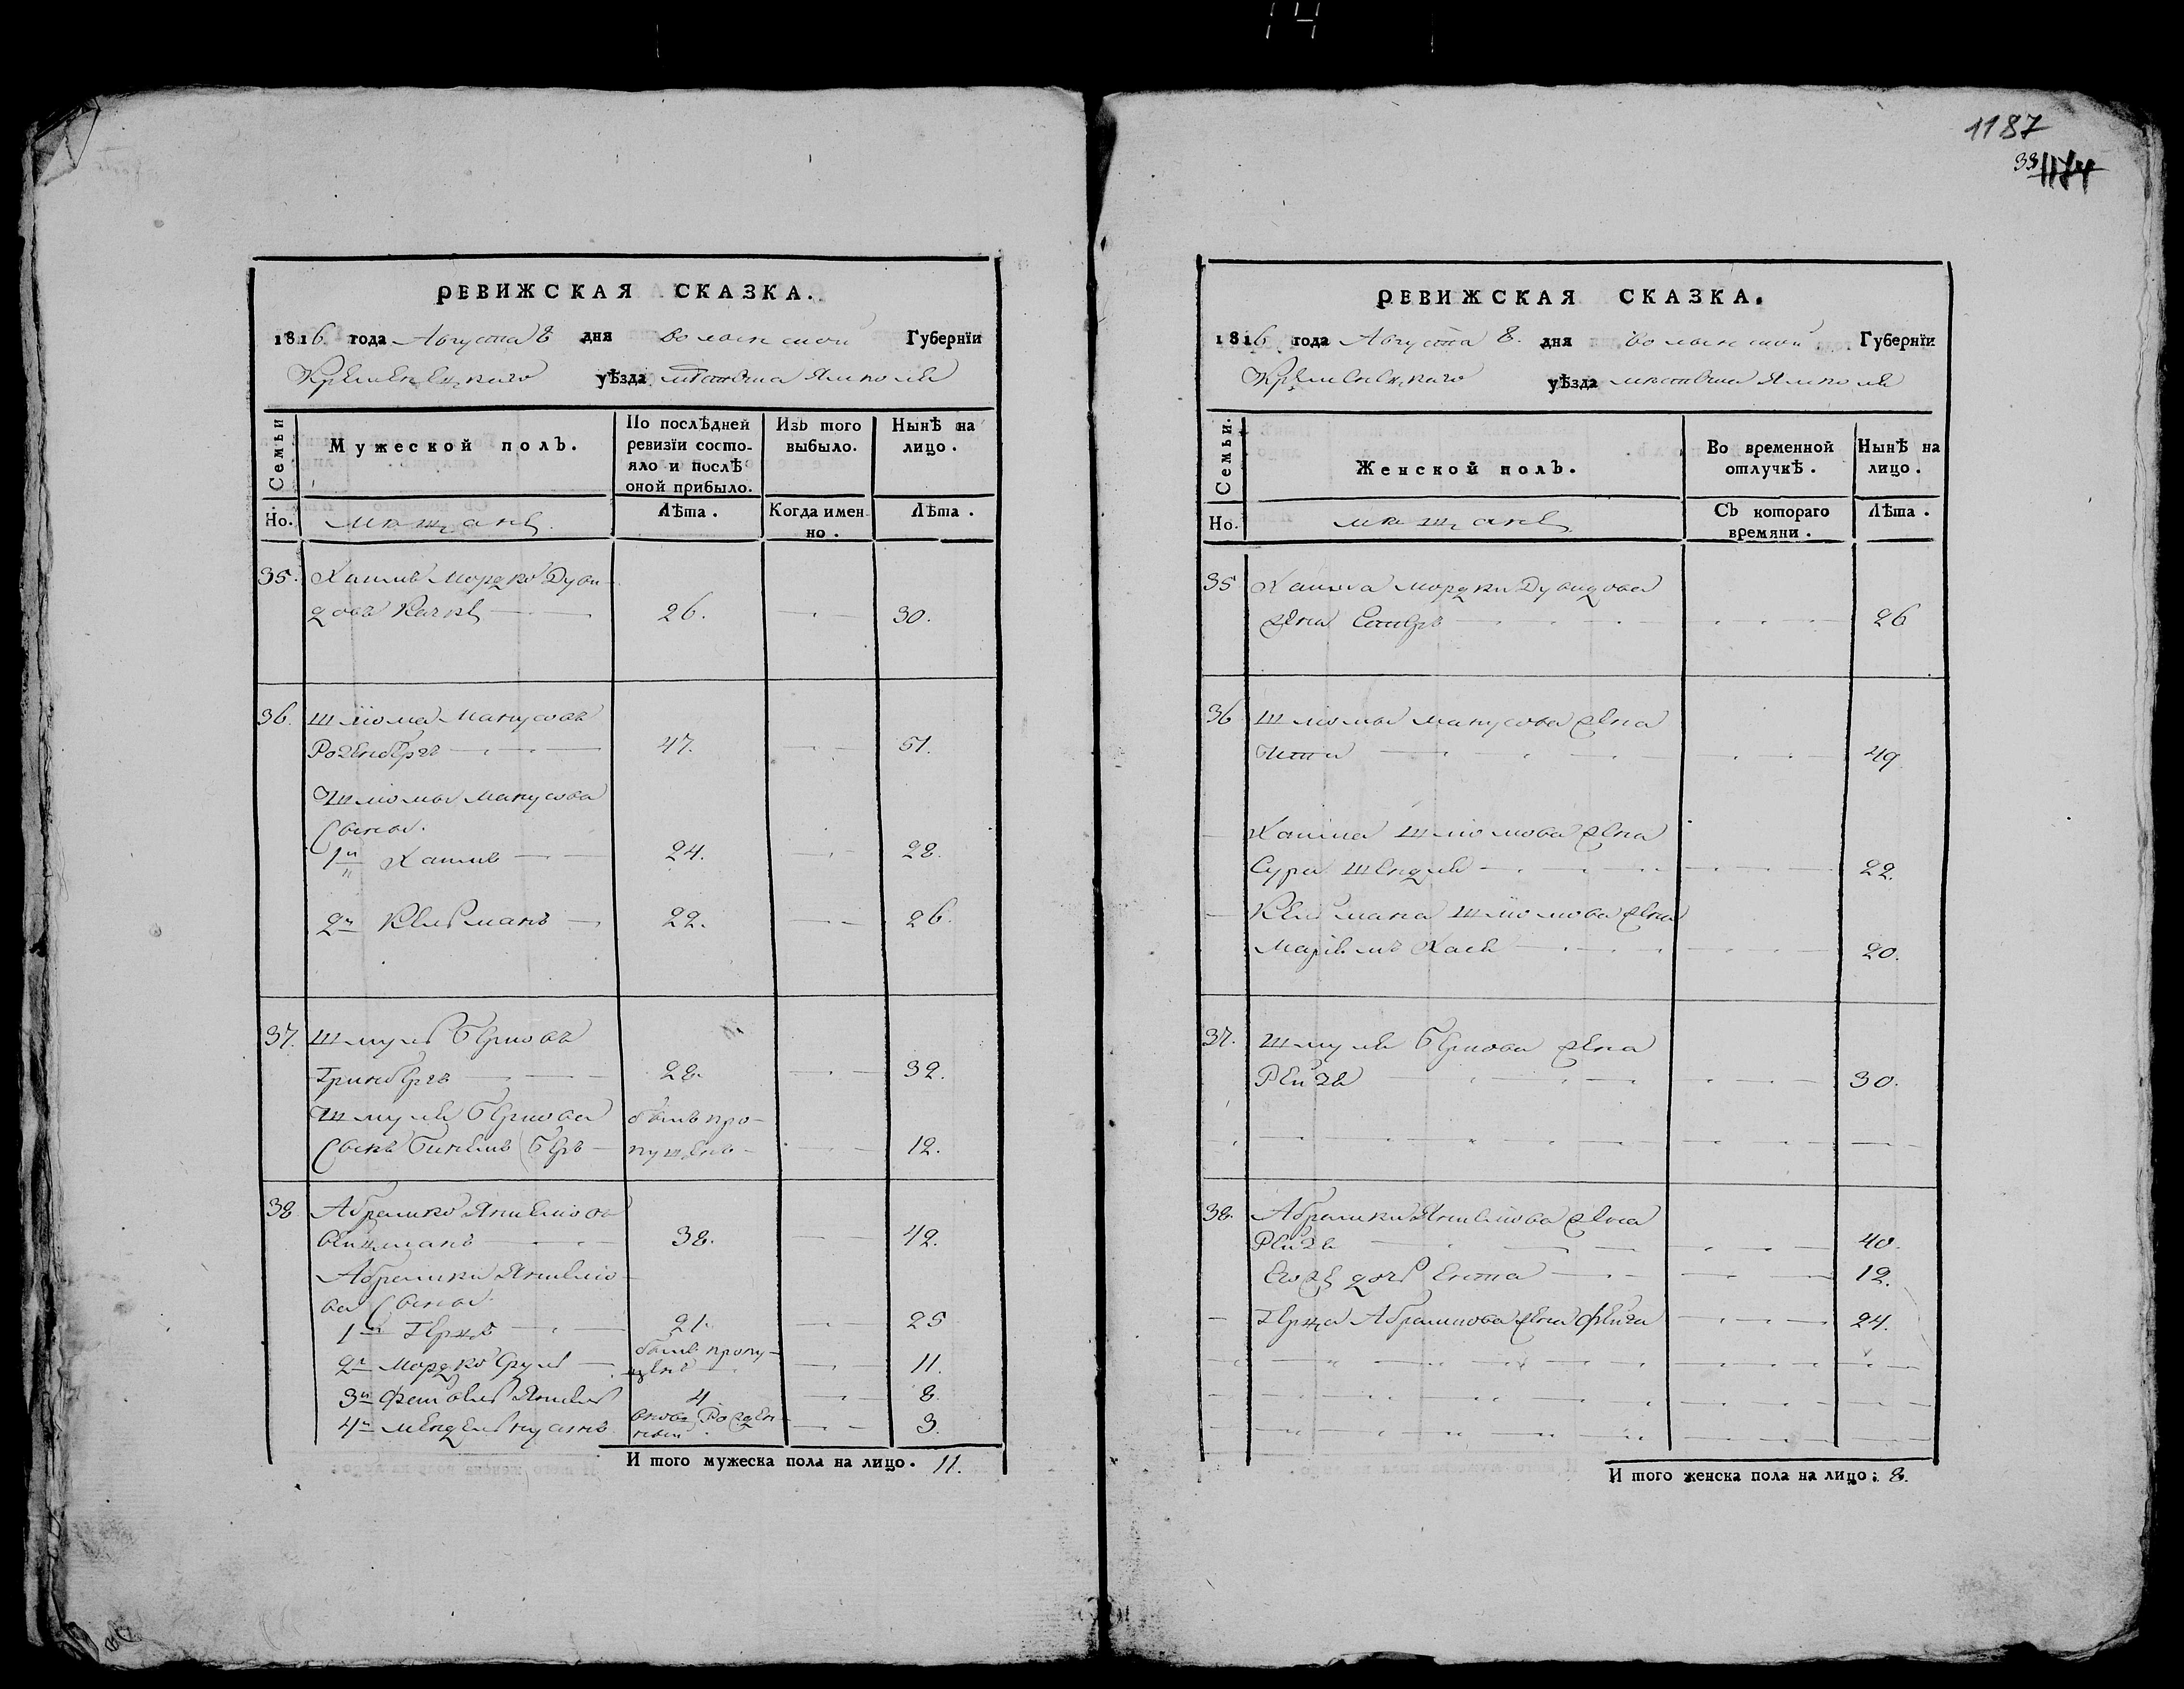 14
РЕВИЖСКАЯ СКАЗКА.
1816 года Августа 8 дня Волынской Губернїи
Кременецкаго уѣзда мѣстечка Ямполя
Семьи
Мужеской полъ.
По послѣдней ревизїи состо-
яло и послѣ
оной прибыло.
Изъ того
выбыло.
Нынѣ на
лицо.
Но.
мѣщане
Лѣта.
Когда имен
но.
Лѣта.
35. Хаимъ Мордко Дуви-
довъ 26. 30.
36. Шлїома Манусовъ
Розенбергъ 47. 51.
Шлїомы Манусова
Сыновья.
1й Хаимъ 24. 28.
2й Кельманъ 22. 26.
37. Шмуль Берковъ
Гринбергъ 28. 32.
Шмуля Беркова былъ про-
Сынъ Беръ пущенъ 12.
38 Абрамко Янкелїовъ
38. 42.
Абрамки Янкелїо-
ва Сыновья
1й Герцъ 21. 25
2й Мордко Сруль былъ пропу-
щенъ 11.
3й Янкель 4. 8.
4й Мендель вновь Рожден-
ный 3.
И того мужеска пола на лицо. 11.
1187
33 1174
РЕВИЖСКАЯ СКАЗКА.
1816 года Августа 8. дня Волынской Губернїи
Кременецкаго уѣзда мѣстечка Ямполя
Семьи.
Женской полъ.
Во временной
отлучкѣ.
Нынѣ на
лицо.
Но.
мѣщане
Съ котораго
времяни.
Лѣта.
35 Хаима Мордки Дувидова
жена Естеръ 26
36 Шлїомы Манусова жена
49
Хаима Шлїомова жена
Сура Шендля 22.
Кельмана Шлїомова жена
Марїемъ Хася 20.
37. Шмуля Беркова жена
Рейзя 30.
38. Абрамки Янкелїова жена
Рейзя 40.
Егожъ дочь Ента 12.
Герца Абрамкова жена Фейга 24.
И того женска пола на лицо: 8.